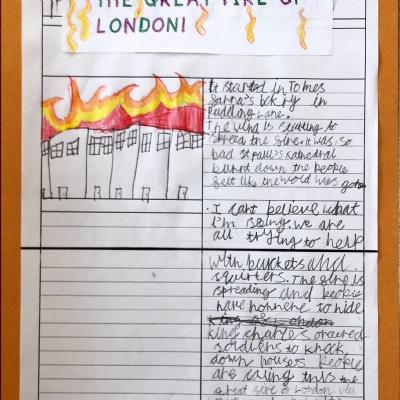 THE GREAT FIRE OF
LONDON!
It started in Tomes
bakery in
Pudding Lane.
The wind is starting to
spread the fire. it was so
bad St paul's Kathedral
burnt down the people
felt like the world was
. I cant believe what
I'm seing. we are
all trying to help
with buckets and.
squirters. The fire is
spreading and people
have nowhere to hide.
king charles ordered
soldiers to knock
down houses People
are caling this the
great fire of London